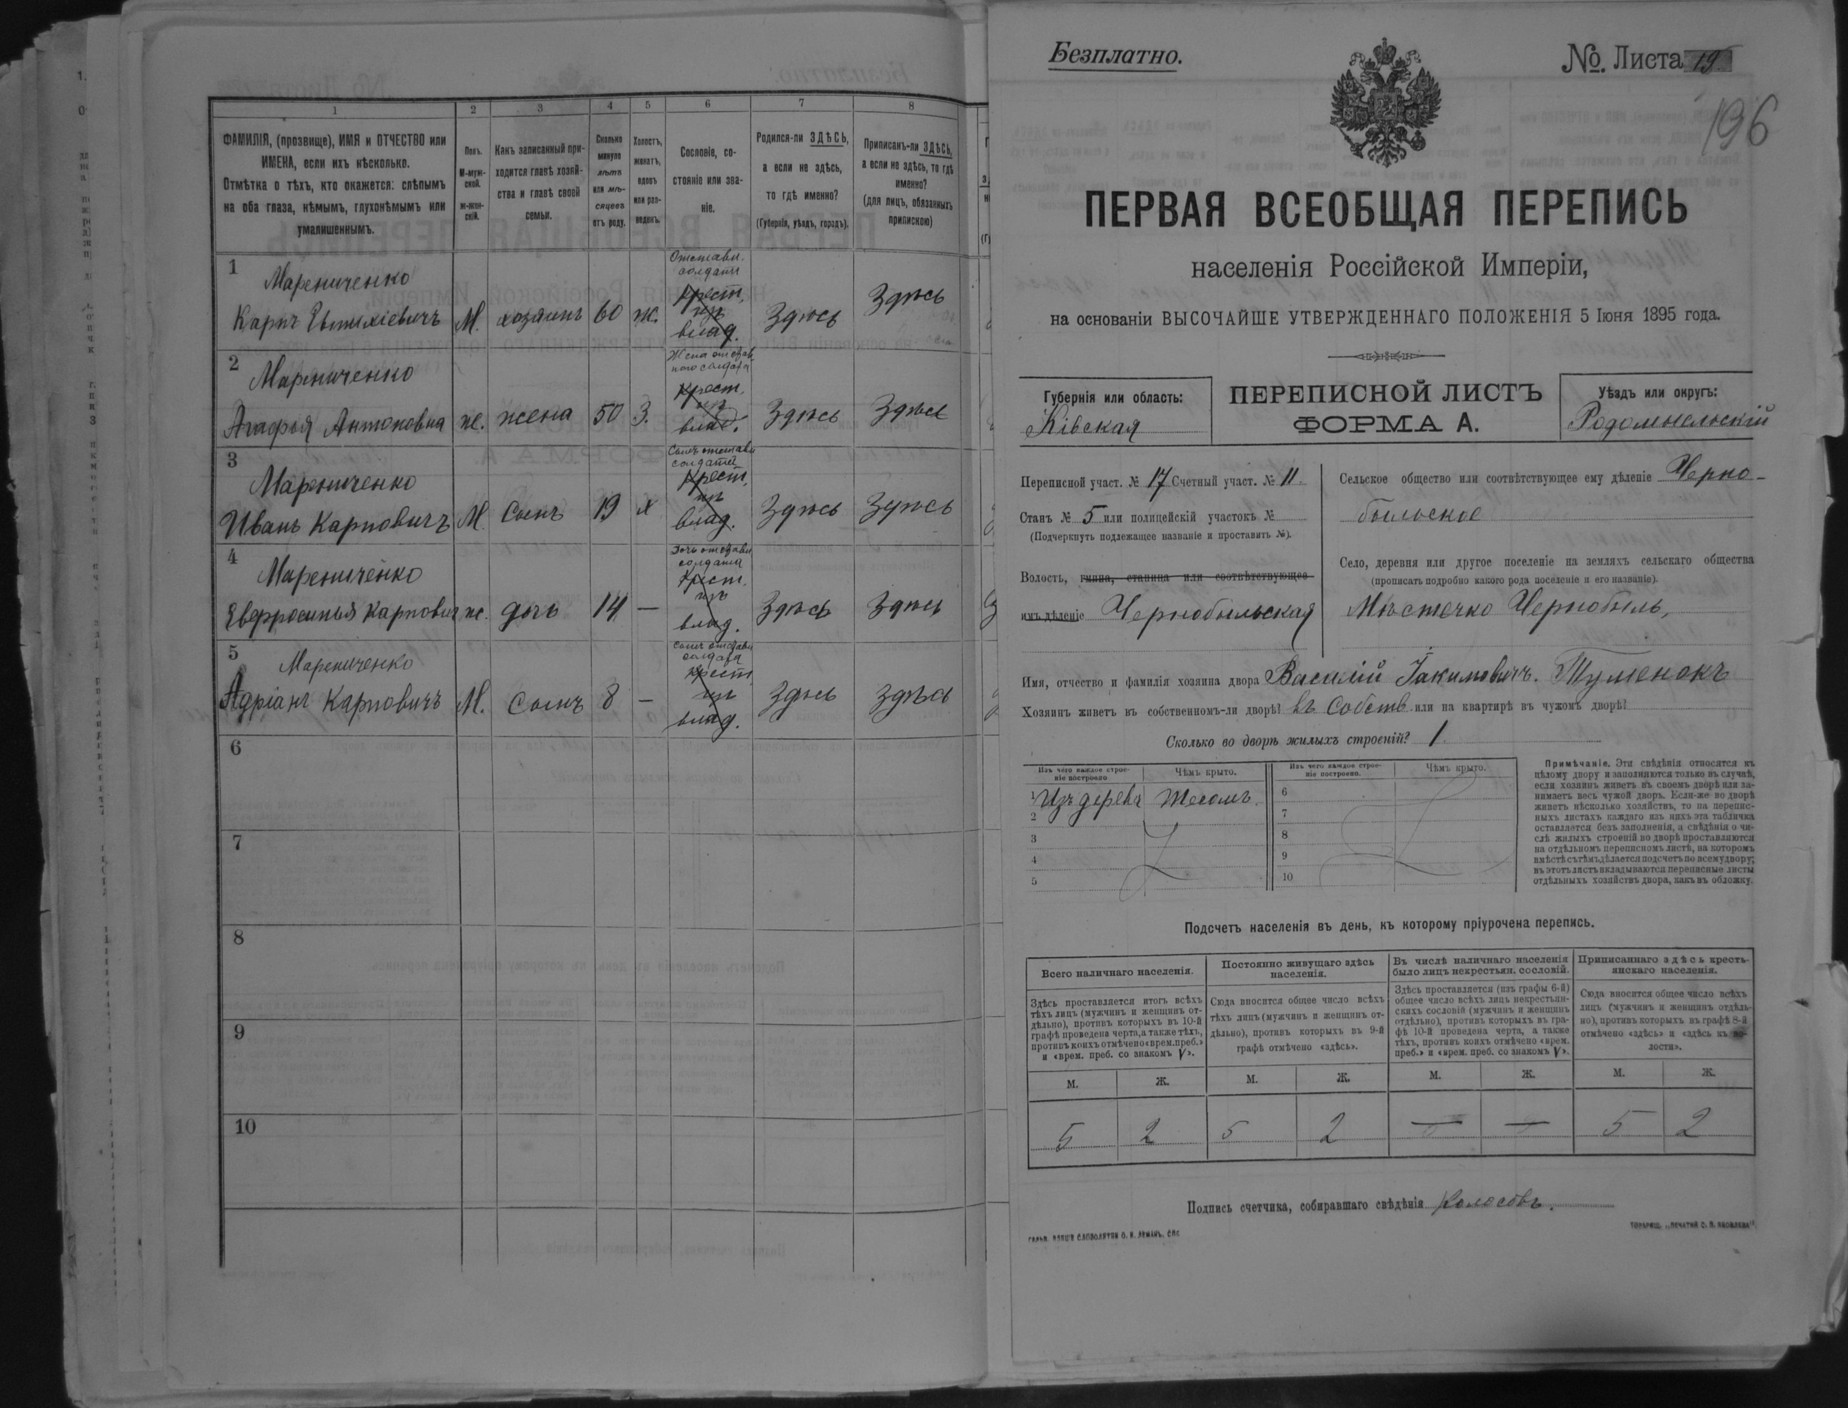 1
2
3
4
5
6
7
8
ФАМИЛІЯ, (прозвище), ИМЯ и ОТЧЕСТВО или
ИМЕНА, если ихъ нѣсколько.
Отмѣтка о тѣхъ, кто окажется: слѣпымъ
на оба глаза, нѣмымъ, глухонѣмымъ или
умалишеннымъ.
Полъ.
М-муж-
ской.
ж-жен-
скій.
Какъ записанный при-
ходится главѣ хозяй-
ства и главѣ своей
семьи.
Сколько
минуло
лѣтъ
или мѣ-
сяцевъ
отъ роду.
Холостъ,
женатъ,
вдовъ
или раз-
веденъ.
Сословіе, со-
стояніе или зва-
ніе.
Родился-ли ЗДѢСЬ,
а если не здѣсь,
то гдѣ именно?
(Губернія, уѣздъ, городъ).
Приписанъ-ли ЗДѢСЬ,
а если не здѣсь, то гдѣ
именно?
(для лицъ, обязанныхъ
припискою)
1
Марениченко
Карпъ Евтихіевичъ М. хозяинъ 60 ж.
Отставн.
солдатъ
крест.
изъ
влад.
Здѣсь Здѣсь
2
Марениченко
Агафья Антоновна ж. жена 50 З.
Жена отстав
ного солдата
крест.
изъ
влад.
Здѣсь Здѣсь
3
Марениченко
Иванъ Карповичъ М. Сынъ 19 х
Сынъ отставн
солдата
крест.
изъ
влад.
Здѣсь Здѣсь
4
Марениченко
Евфросинья Карповн ж. дочь 14 —
Дочь отставн
солдата
крест.
изъ
влад.
Здѣсь Здѣсь
5
Марениченко
Адріанъ Карповичъ М. Сынъ 8 —
Сынъ отставн
солдата
крест
изъ
влад.
Здѣсь Здѣсь
6
7
8
9
10
Безплатно.
№. Листа 19
196
ПЕРВАЯ ВСЕОБЩАЯ ПЕРЕПИСЬ
населенія Россійской Имперіи,
на основаніи ВЫСОЧАЙШЕ УТВЕРЖДЕННАГО ПОЛОЖЕНІЯ 5 Іюня 1895 года.
Губернія или область:
Кіевская
ПЕРЕПИСНОЙ ЛИСТЪ
ФОРМА А.
Уѣздъ или округъ:
Родомысльскій
Переписной участ. № 17 Счетный участ. № 11.
Станъ № 5 или полицейскій участокъ №
(Подчеркнуть подлежащее названіе и проставить №).
Волость, гмина, станица или соотвѣтствующее
имъ дѣленіе Чернобыльская
Сельское общество или соотвѣтствующее ему дѣленіе Черно-
быльское
Село, деревня или другое поселеніе на земляхъ сельскаго общества
(прописать подробно какого рода поселеніе и его названіе).
Мѣстечко Чернобыль,
Имя, отчество и фамилія хозяина двора Василій Іакимовичъ. Туменокъ
Хозяинъ живетъ въ собственномъ-ли дворѣ? въ Собств. или на квартирѣ въ чужомъ дворѣ?
Сколько во дворѣ жилыхъ строеній? 1
Изъ чего каждое строе-
ніе построено
Чѣмъ крыто.
Изъ чего каждое строе-
ніе построено.
Чѣмъ крыто.
1 Изъ дерева Тесомъ.
2
3
4
5
6
7
8
9
10
Примѣчаніе. Эти свѣдѣнія относятся къ
цѣлому двору и заполняются только въ случаѣ,
если хозяинъ живетъ въ своемъ дворѣ или за-
нимаетъ весь чужой дворъ. Если-же во дворѣ
живетъ нѣсколько хозяйствъ, то на перепис-
ныхъ листахъ каждаго изъ нихъ эта табличка
оставляется безъ заполненія, а свѣдѣнія о чи-
слѣ жилыхъ строеній во дворѣ проставляются
на отдѣльномъ переписномъ листѣ, на которомъ
вмѣстѣ съ тѣмъ дѣлается подсчетъ по всему двору;
въ этотъ листъ вкладываются переписные листы
отдѣльныхъ хозяйствъ двора, какъ въ обложку.
Подсчетъ населенія въ день, къ которому пріурочена перепись.
Всего наличнаго населенія.
Постоянно живущаго здѣсь
населенія.
Въ числѣ наличнаго населенія
было лицъ некрестьян. сословій.
Приписаннаго здѣсь кресть-
янскаго населенія.
Здѣсь проставляется итогъ всѣхъ
тѣхъ лицъ (мужчинъ и женщинъ от-
дѣльно), противъ которыхъ въ 10-й
графѣ проведена черта, а также тѣхъ,
противъ коихъ отмѣчено «врем. преб.»
и «врем. преб. со знакомъ V».
Сюда вносится общее число всѣхъ
тѣхъ лицъ (мужчинъ и женщинъ от-
дѣльно), противъ которыхъ въ 9-й
графѣ отмѣчено «здѣсь».
Здѣсь проставляется (изъ графы 6-й)
общее число всѣхъ лицъ некрестьян-
скихъ сословій (мужчинъ и женщинъ
отдѣльно), противъ которыхъ въ гра-
фѣ 10-й проведена черта, а также
тѣхъ, противъ коихъ отмѣчено «врем.
преб.» и «врем. преб. со знакомъ V».
Сюда вносится общее число всѣхъ
лицъ (мужчинъ и женщинъ отдѣль-
но), противъ которыхъ въ графѣ 8-й
отмѣчено «здѣсь» и «здѣсь въ во-
лости».
М. Ж. М. Ж. М. Ж. М. Ж.
5 2 5 2 — — 5 2
Подпись счетчика, собиравшаго свѣдѣнія Колосовъ.